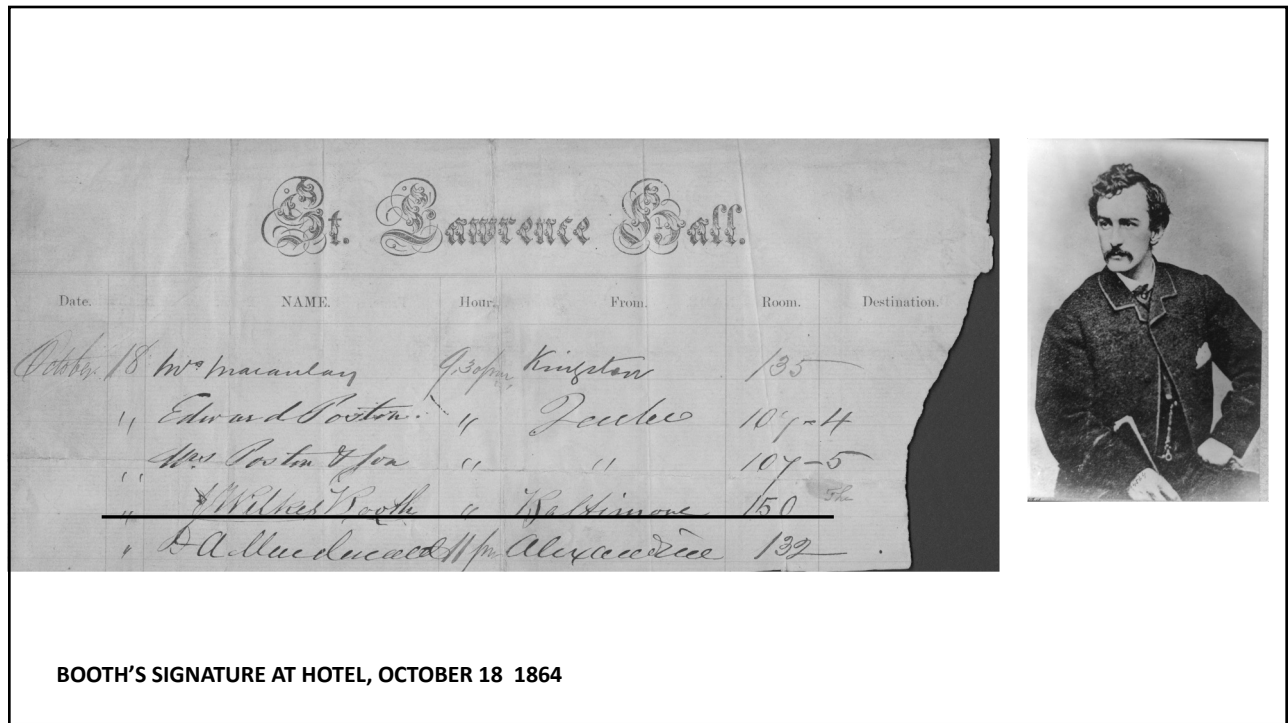 St. Lawrence Hall.
Date. NAME. Hour. From. Room. Destination.
October 18 Mrs Macaulay 9.30 pm Kingston 135
" Edward Poston " 107-4
" Mrs Poston & Son " " 107-5
" J Wilkes Booth " Baltimore 150
" D A 11 pm 132
BOOTH'S SIGNATURE AT HOTEL, OCTOBER 18 1864